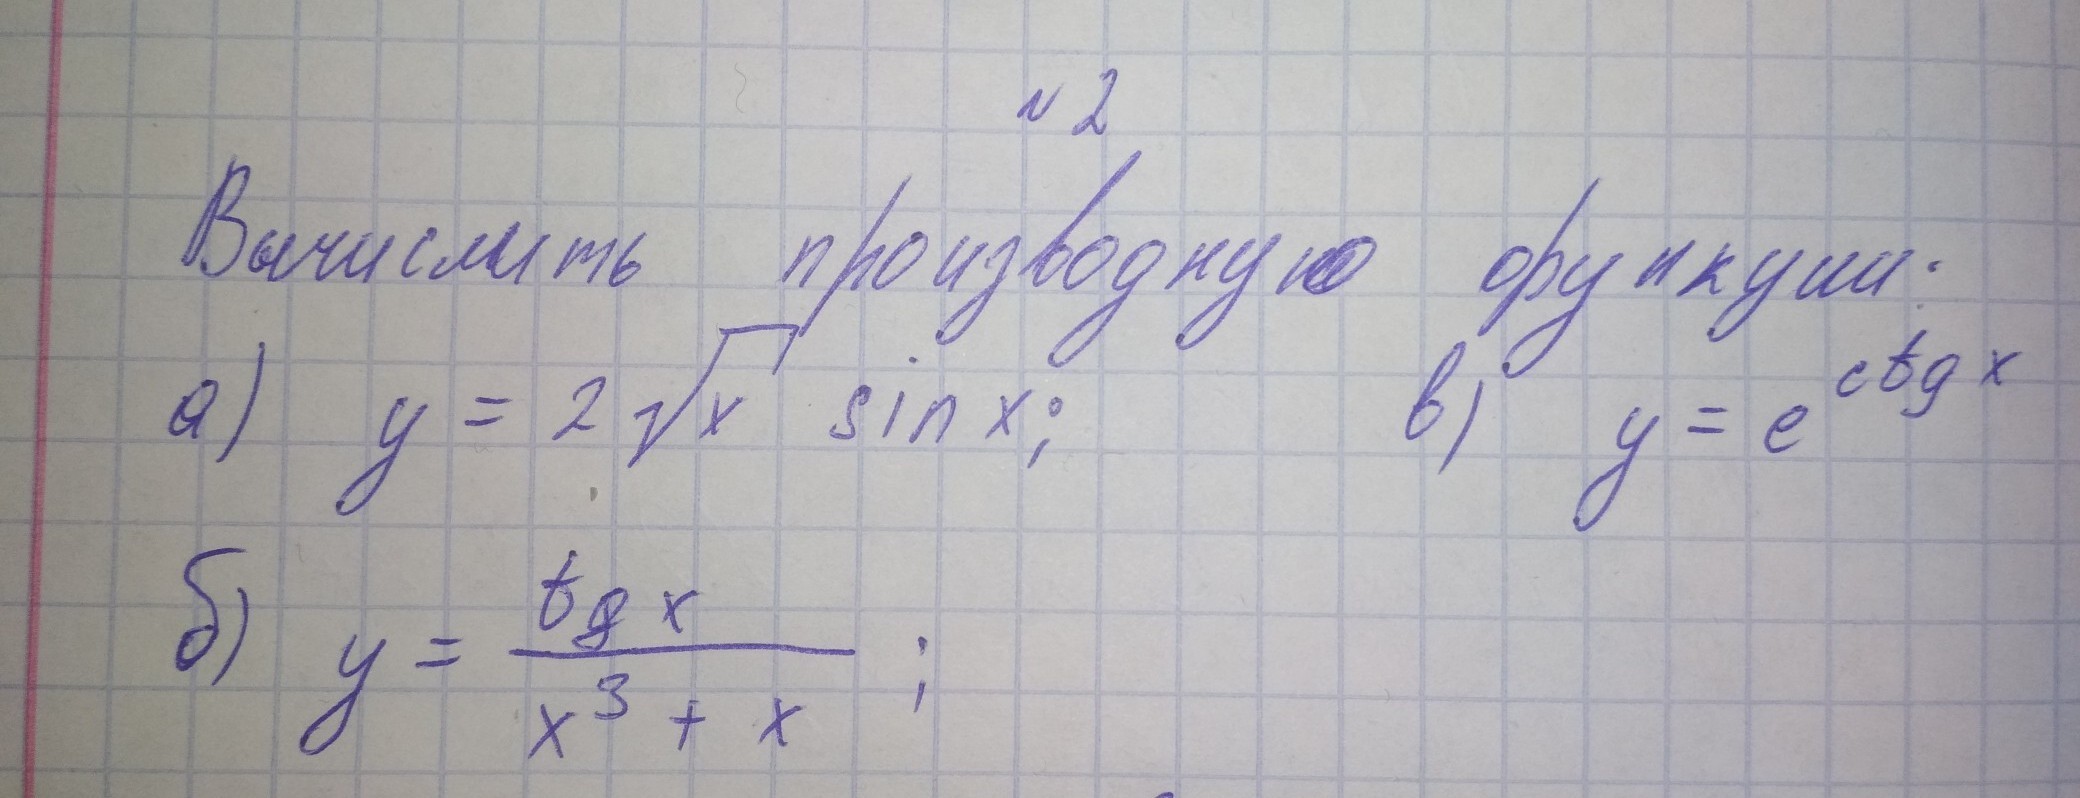 №2
Вычислить производную функции:
а) y = 2√x sin x; в) y = e^ctg x
б) y = tg x / x³ + x ;